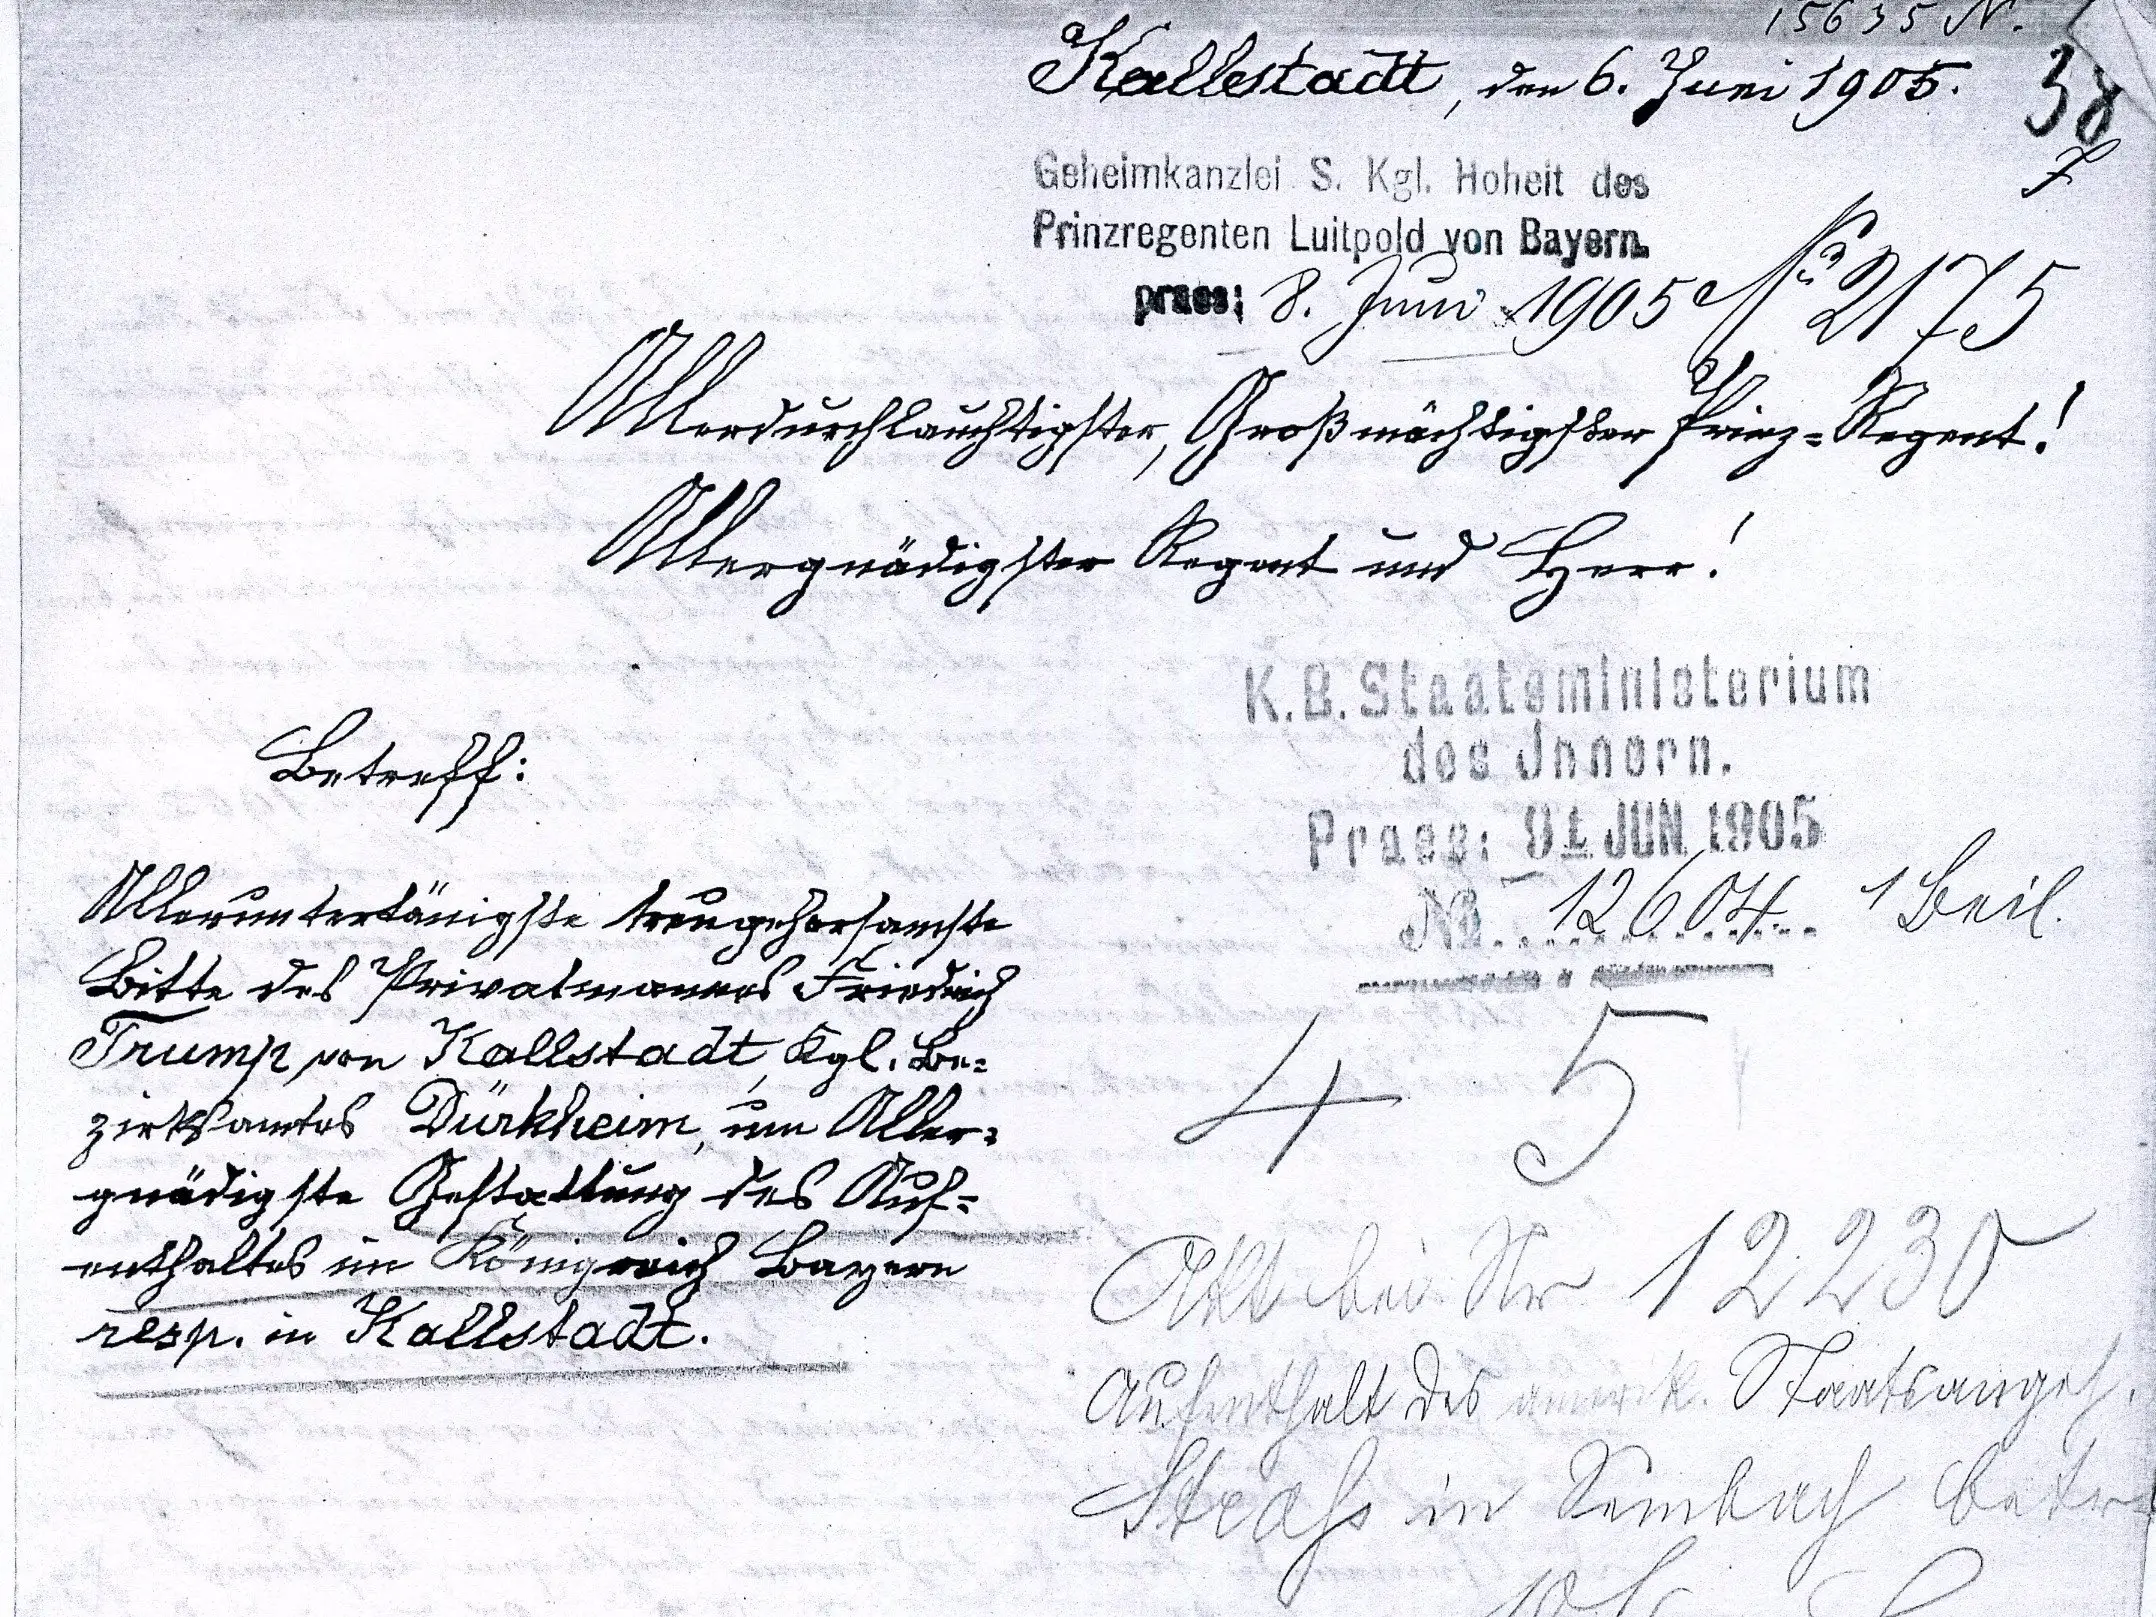 15635 N.
Kallstadt, den 6. Juni 1905.
38
Geheimkanzlei S. Kgl. Hoheit des
Prinzregenten Luitpold von Bayern.
praes: 8. Juni 1905 No 2175
Allerdurchlauchtigster, Großmächtigster Prinz-Regent!
Allergnädigster Regent und Herr!
K. B. Staatsministerium
des Innern.
Praes: JUN 1905
No 12604. 1 Beil.
Betreff:
Alleruntertänigste treugehorsamste
Bitte des Privatmannes Friedrich
Trump von Kallstadt, Kgl. Be-
zirksamtes Dürkheim, um Aller-
gnädigste Gestattung des Auf-
enthaltes im Königreich Bayern
resp. in Kallstadt.
4 5
Akt bei Nr 12230
Aufenthalt des amerik. Staatsangeh.
in Sembach